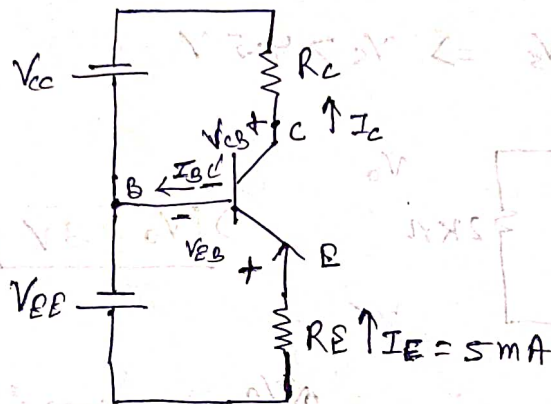 V_CC
R_C
V_CB + C ↑ I_C
B I_B ← −
−
V_EB + E
V_EE
R_E ↑ I_E = 5 mA